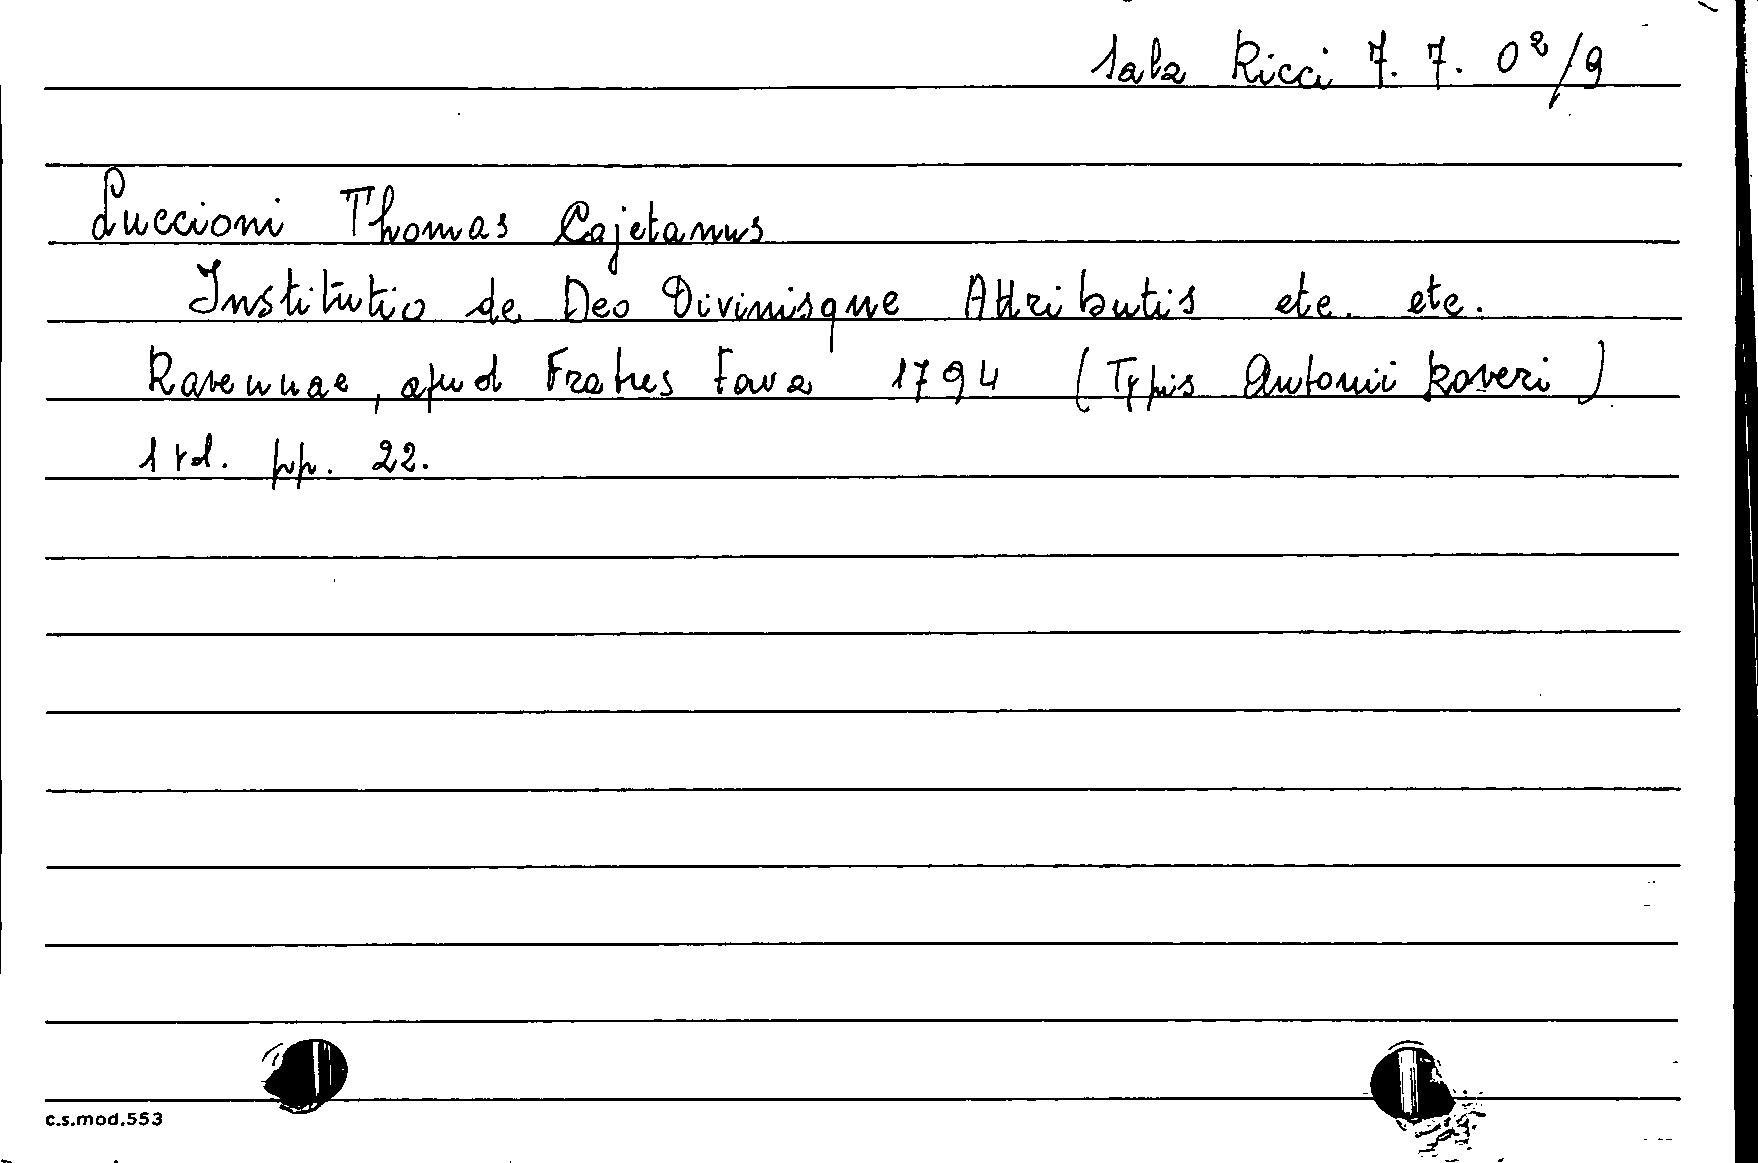 Sala Ricci 7. 7. O²/9
Luccioni Thomas Cajetanus
Institutio de Deo Divinisque Attributis etc. etc.
Ravennae, apud Fratres Fava 1794 (Typis Antonii Roveri)
1 vol. pp. 22.
c.s.mod.553